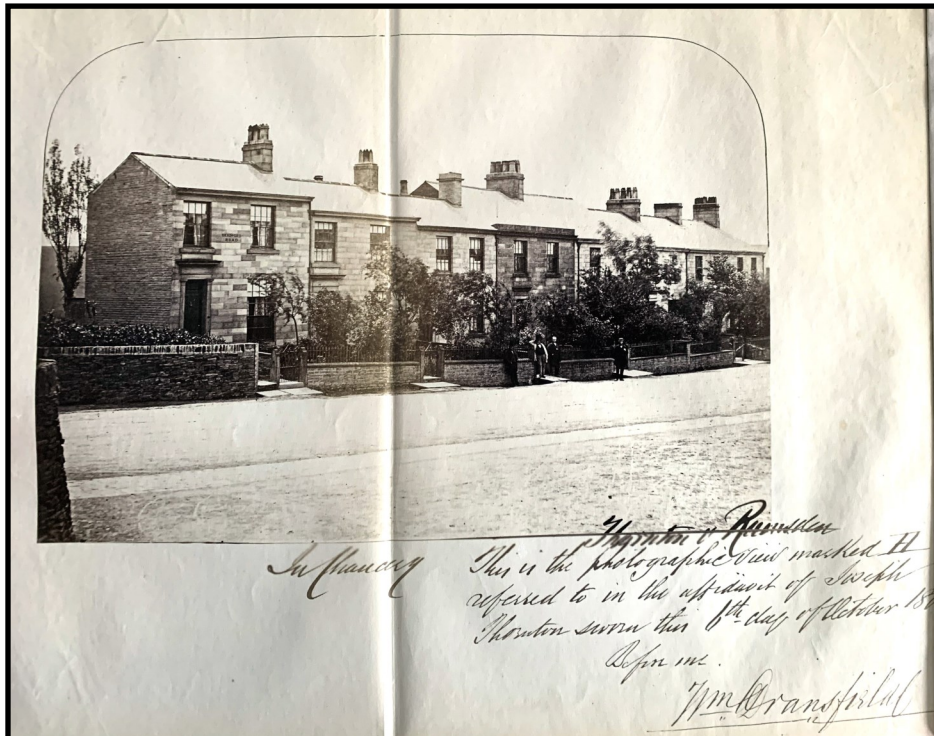 Thornton v Ramsden
In Chancery
This is the photographic View marked H
referred to in the affidavit of Joseph
Thornton sworn this 6th day of October
Before me.
Wm Dransfield